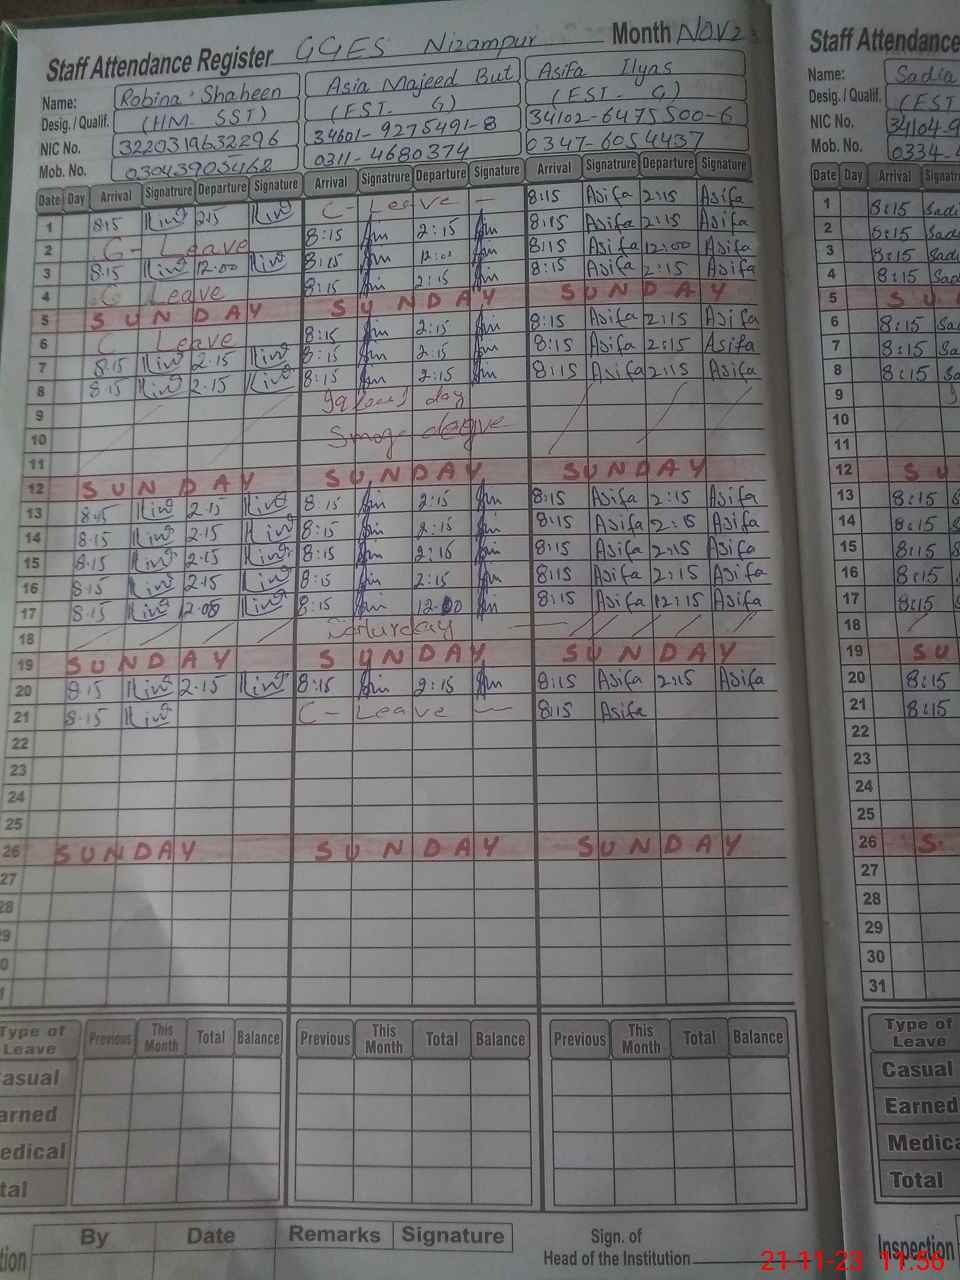 Staff Attendance Register GGES Nizampur Month Nov 23
Name: Robina Shaheen Asia Majeed But Asifa Ilyas
Desig. / Qualif. (HM. SST) (EST. G) (EST. G)
NIC No. 3220319632296 34601-9275491-8 34102-6475500-6
Mob. No. 03043905162 0311-4680374 0347-6054437
Date Day Arrival Signatrure Departure Signature Arrival Signatrure Departure Signature Arrival Signatrure Departure Signature
1 8:15 2:15 C-Leave 8:15 Asifa 2:15 Asifa
2 C-Leave 8:15 2:15 8:15 Asifa 2:15 Asifa
3 8:15 12:00 8:15 12:00 8:15 Asifa 12:00 Asifa
4 C Leave 8:15 2:15 8:15 Asifa 2:15 Asifa
5 SUNDAY SUNDAY SUNDAY
6 C Leave 8:15 2:15 8:15 Asifa 2:15 Asifa
7 8:15 2:15 8:15 2:15 8:15 Asifa 2:15 Asifa
8 8:15 2:15 8:15 2:15 8:15 Asifa 2:15 Asifa
9 day
10 Smog
11
12 SUNDAY SUNDAY SUNDAY
13 8:15 2:15 8:15 2:15 8:15 Asifa 2:15 Asifa
14 8:15 2:15 8:15 2:15 8:15 Asifa 2:15 Asifa
15 8:15 2:15 8:15 2:15 8:15 Asifa 2:15 Asifa
16 8:15 2:15 8:15 2:15 8:15 Asifa 2:15 Asifa
17 8:15 12:00 8:15 12:00 8:15 Asifa 12:15 Asifa
18 Saturday
19 SUNDAY SUNDAY SUNDAY
20 8:15 2:15 8:15 2:15 8:15 Asifa 2:15 Asifa
21 8:15 C-Leave 8:15 Asifa
22
23
24
25
26 SUNDAY SUNDAY SUNDAY
27
28
29
30
31
Type of Leave Previous This Month Total Balance Previous This Month Total Balance Previous This Month Total Balance
Casual
Earned
Medical
Total
By Date Remarks Signature
Sign. of
Head of the Institution
Staff Attendance
Name: Sadia
Desig. / Qualif. (EST
NIC No. 34104-9
Mob. No. 0334-
Date Day Arrival
1 8:15 Sadi
2 8:15 Sad
3 8:15 Sad
4 8:15 Sad
5 SU
6 8:15 Sad
7 8:15 Sa
8 8:15 Sa
9
10
11
12 SU
13 8:15
14 8:15
15 8:15
16 8:15
17 8:15
18
19 SU
20 8:15
21 8:15
22
23
24
25
26 S
27
28
29
30
31
Type of
Leave
Casual
Earned
Medica
Total
Inspection
21-11-23 11:56